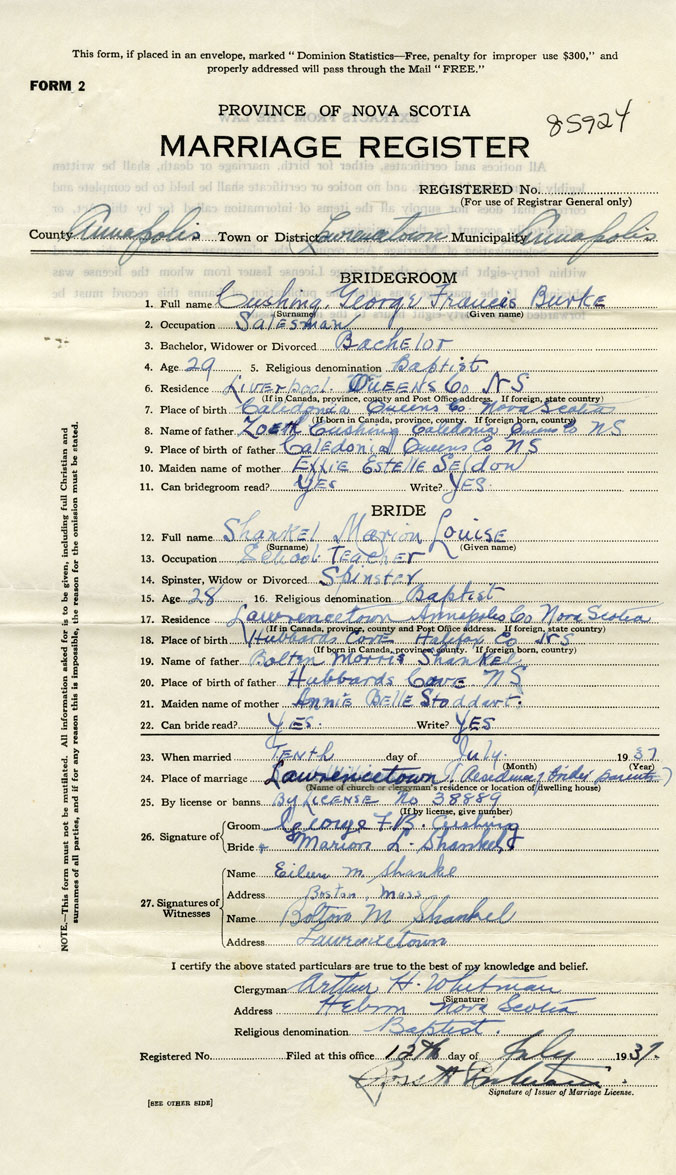 This form, if placed in an envelope, marked "Dominion Statistics—Free, penalty for improper use $300," and
properly addressed will pass through the Mail "FREE."
FORM 2
PROVINCE OF NOVA SCOTIA
85924
MARRIAGE REGISTER
REGISTERED No.
(For use of Registrar General only)
County Annapolis Town or District Lawrencetown Municipality Annapolis
BRIDEGROOM
1. Full name Cushing, George Frances Burke
(Surname) (Given name)
2. Occupation Salesman
3. Bachelor, Widower or Divorced Bachelor
4. Age 29 5. Religious denomination Baptist
6. Residence Liverpool Queens Co NS
(If in Canada, province, county and Post Office address. If foreign, state country)
7. Place of birth Caledonia Queens Co Nova Scotia
(If born in Canada, province, county. If foreign born, country)
8. Name of father Zoeth Cushing Caledonia Queens Co NS
9. Place of birth of father Caledonia Queens Co NS
10. Maiden name of mother Effie Estelle Seldon
11. Can bridegroom read? Yes Write? Yes
BRIDE
12. Full name Shankel Marion Louise
(Surname) (Given name)
13. Occupation School Teacher
14. Spinster, Widow or Divorced Spinster
15. Age 28 16. Religious denomination Baptist
17. Residence Lawrencetown Annapolis Co Nova Scotia
(If in Canada, province, county and Post Office address. If foreign, state country)
18. Place of birth Hubbards Cove Halifax Co NS
(If born in Canada, province, county. If foreign born, country)
19. Name of father Bolton Morris Shankel
20. Place of birth of father Hubbards Cove NS
21. Maiden name of mother Annie Belle Stoddart.
22. Can bride read? Yes. Write? Yes
23. When married Tenth day of July. 1937
(Month) (Year)
24. Place of marriage Lawrencetown (Residence, Brides parents)
(Name of church or clergyman's residence or location of dwelling house)
25. By license or banns By License No 38889
(If by license, give number)
26. Signature of
Groom George F. B. Cushing
Bride Marion L. Shankel
27. Signatures of Witnesses
Name Eileen M. Shankel
Address Boston, Mass
Name Bolton M Shankel
Address Lawrencetown
I certify the above stated particulars are true to the best of my knowledge and belief.
Clergyman Arthur H. Whitman
(Signature)
Address Hebron Nova Scotia
Religious denomination Baptist.
Registered No. Filed at this office 12th day of July 1937.
Signature of Issuer of Marriage License.
[SEE OTHER SIDE]
NOTE.—This form must not be mutilated. All information asked for is to be given, including full Christian and
surnames of all parties, and if for any reason this is impossible, the reason for the omission must be stated.